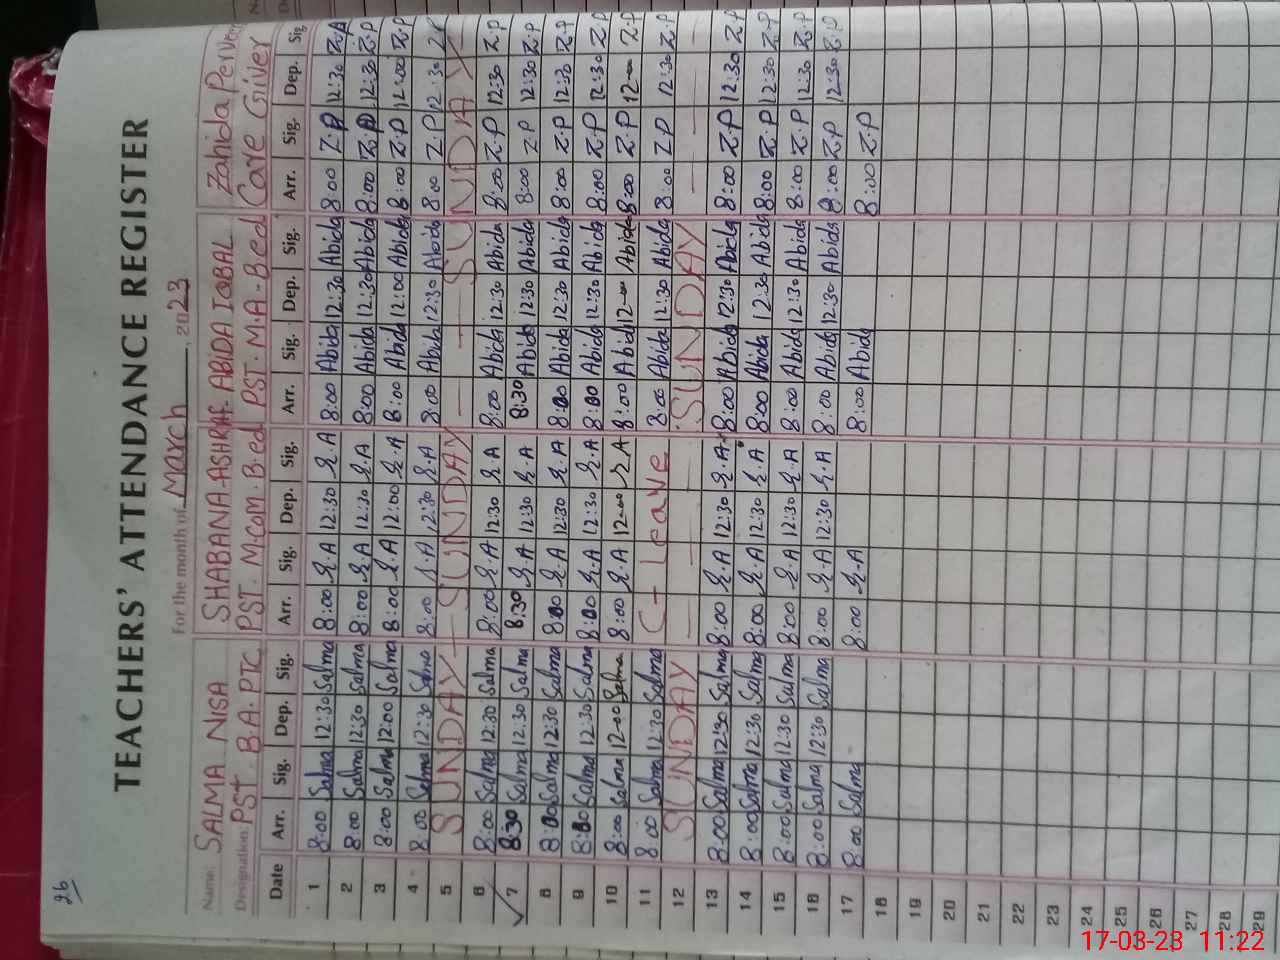 26
TEACHERS' ATTENDANCE REGISTER
For the month of March, 2023
Name: SALMA NISA SHABANA ASHRAF ABIDA IQBAL Zahida Perven
Designation: PST B.A. PTC PST. M.Com. B.ed PST. M.A. B.ed Care Giver
Date Arr. Sig. Dep. Sig. Arr. Sig. Dep. Sig. Arr. Sig. Dep. Sig. Arr. Sig. Dep. Sig
1 8:00 Salma 12:30 Salma 8:00 S.A 12:30 S.A 8:00 Abida 12:30 Abida 8:00 Z.P 12:30 Z.P
2 8:00 Salma 12:30 Salma 8:00 S.A 12:30 S.A 8:00 Abida 12:30 Abida 8:00 Z.P 12:30 Z.P
3 8:00 Salma 12:00 Salma 8:00 S.A 12:00 S.A 8:00 Abida 12:00 Abida 8:00 Z.P 12:00 Z.P
4 8:00 Salma 12:30 Salma 8:00 S.A 12:30 S.A 8:00 Abida 12:30 Abida 8:00 Z.P 12:30 Z.P
5 SUNDAY — SUNDAY — — SUNDAY
6 8:00 Salma 12:30 Salma 8:00 S.A 12:30 S.A 8:00 Abida 12:30 Abida 8:00 Z.P 12:30 Z.P
7 8:30 Salma 12:30 Salma 8:30 S.A 12:30 S.A 8:30 Abida 12:30 Abida 8:00 Z.P 12:30 Z.P
8 8:00 Salma 12:30 Salma 8:00 S.A 12:30 S.A 8:00 Abida 12:30 Abida 8:00 Z.P 12:30 Z.P
9 8:00 Salma 12:30 Salma 8:00 S.A 12:30 S.A 8:00 Abida 12:30 Abida 8:00 Z.P 12:30 Z.P
10 8:00 Salma 12-00 Salma 8:00 S.A 12-00 S.A 8:00 Abida 12-00 Abida 8:00 Z.P 12-00 Z.P
11 8:00 Salma 12:30 Salma C- Leave 8:00 Abida 12:30 Abida 8:00 Z.P 12:30 Z.P
12 SUNDAY — — — — SUNDAY — — —
13 8:00 Salma 12:30 Salma 8:00 S.A 12:30 S.A 8:00 Abida 12:30 Abida 8:00 Z.P 12:30 Z.P
14 8:00 Salma 12:30 Salma 8:00 S.A 12:30 S.A 8:00 Abida 12:30 Abida 8:00 Z.P 12:30 Z.P
15 8:00 Salma 12:30 Salma 8:00 S.A 12:30 S.A 8:00 Abida 12:30 Abida 8:00 Z.P 12:30 Z.P
16 8:00 Salma 12:30 Salma 8:00 S.A 12:30 S.A 8:00 Abida 12:30 Abida 8:00 Z.P 12:30 Z.P
17 8:00 Salma 8:00 S.A 8:00 Abida 8:00 Z.P
18
19
20
21
22
23
24
25
26
27
28
29
17-03-23 11:22